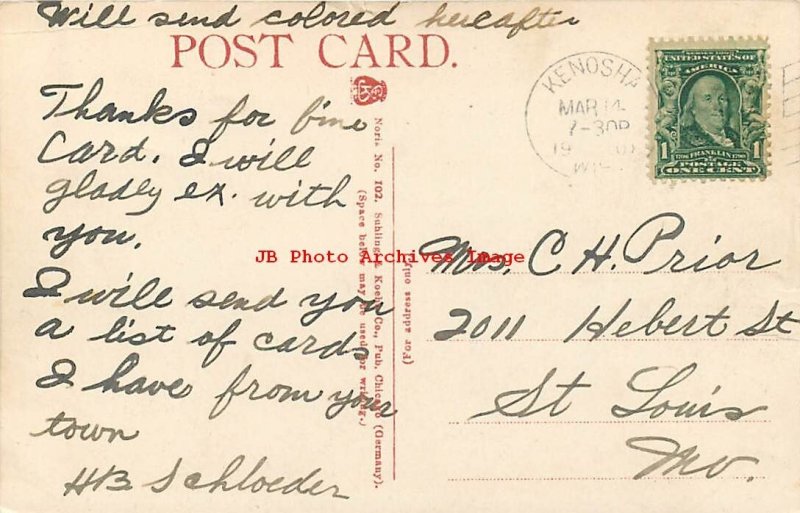 Will send colored hereafter
POST CARD.
Thanks for fine
Card. I will
gladly ex. with
you.
I will send you
a list of cards
I have from your
town
HB Schloeder
No. 102. Suhling & Koehn Co., Pub. Chicago (Germany).
(Space below may be used for writing.)
(For address only)
JB Photo Archives Image
KENOSHA
MAR 14
7-30P
19
WIS.
SERIES 1902
UNITED STATES OF
AMERICA
1 1
FRANKLIN
POSTAGE
ONE CENT
Mrs. C H. Prior
2011 Hebert St
St Louis
Mo.